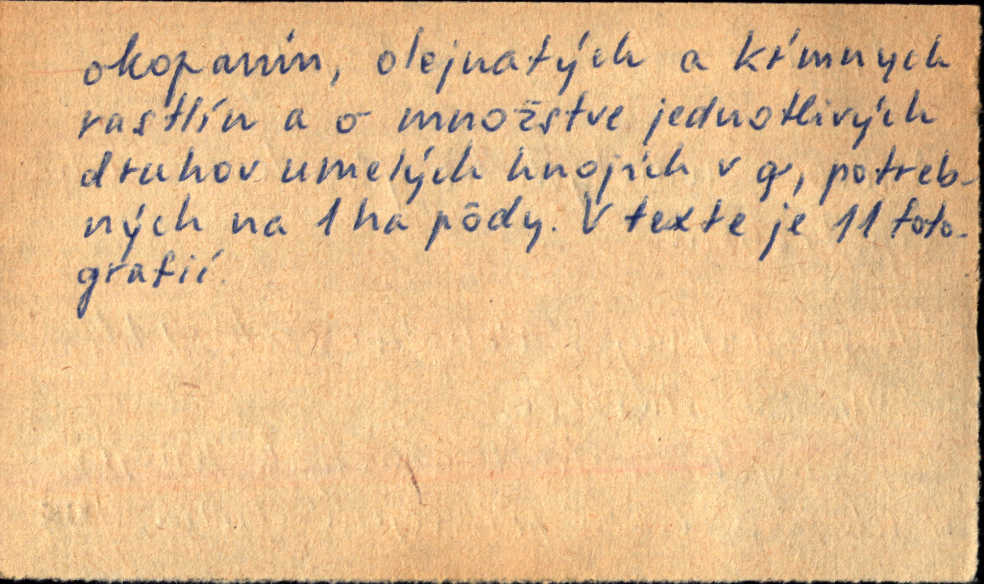 okopanín, olejnatých a kŕmnych
rastlín a o množstve jednotlivých
druhov umelých hnojív v q, potreb-
ných na 1 ha pôdy. V texte je 11 foto-
grafií.